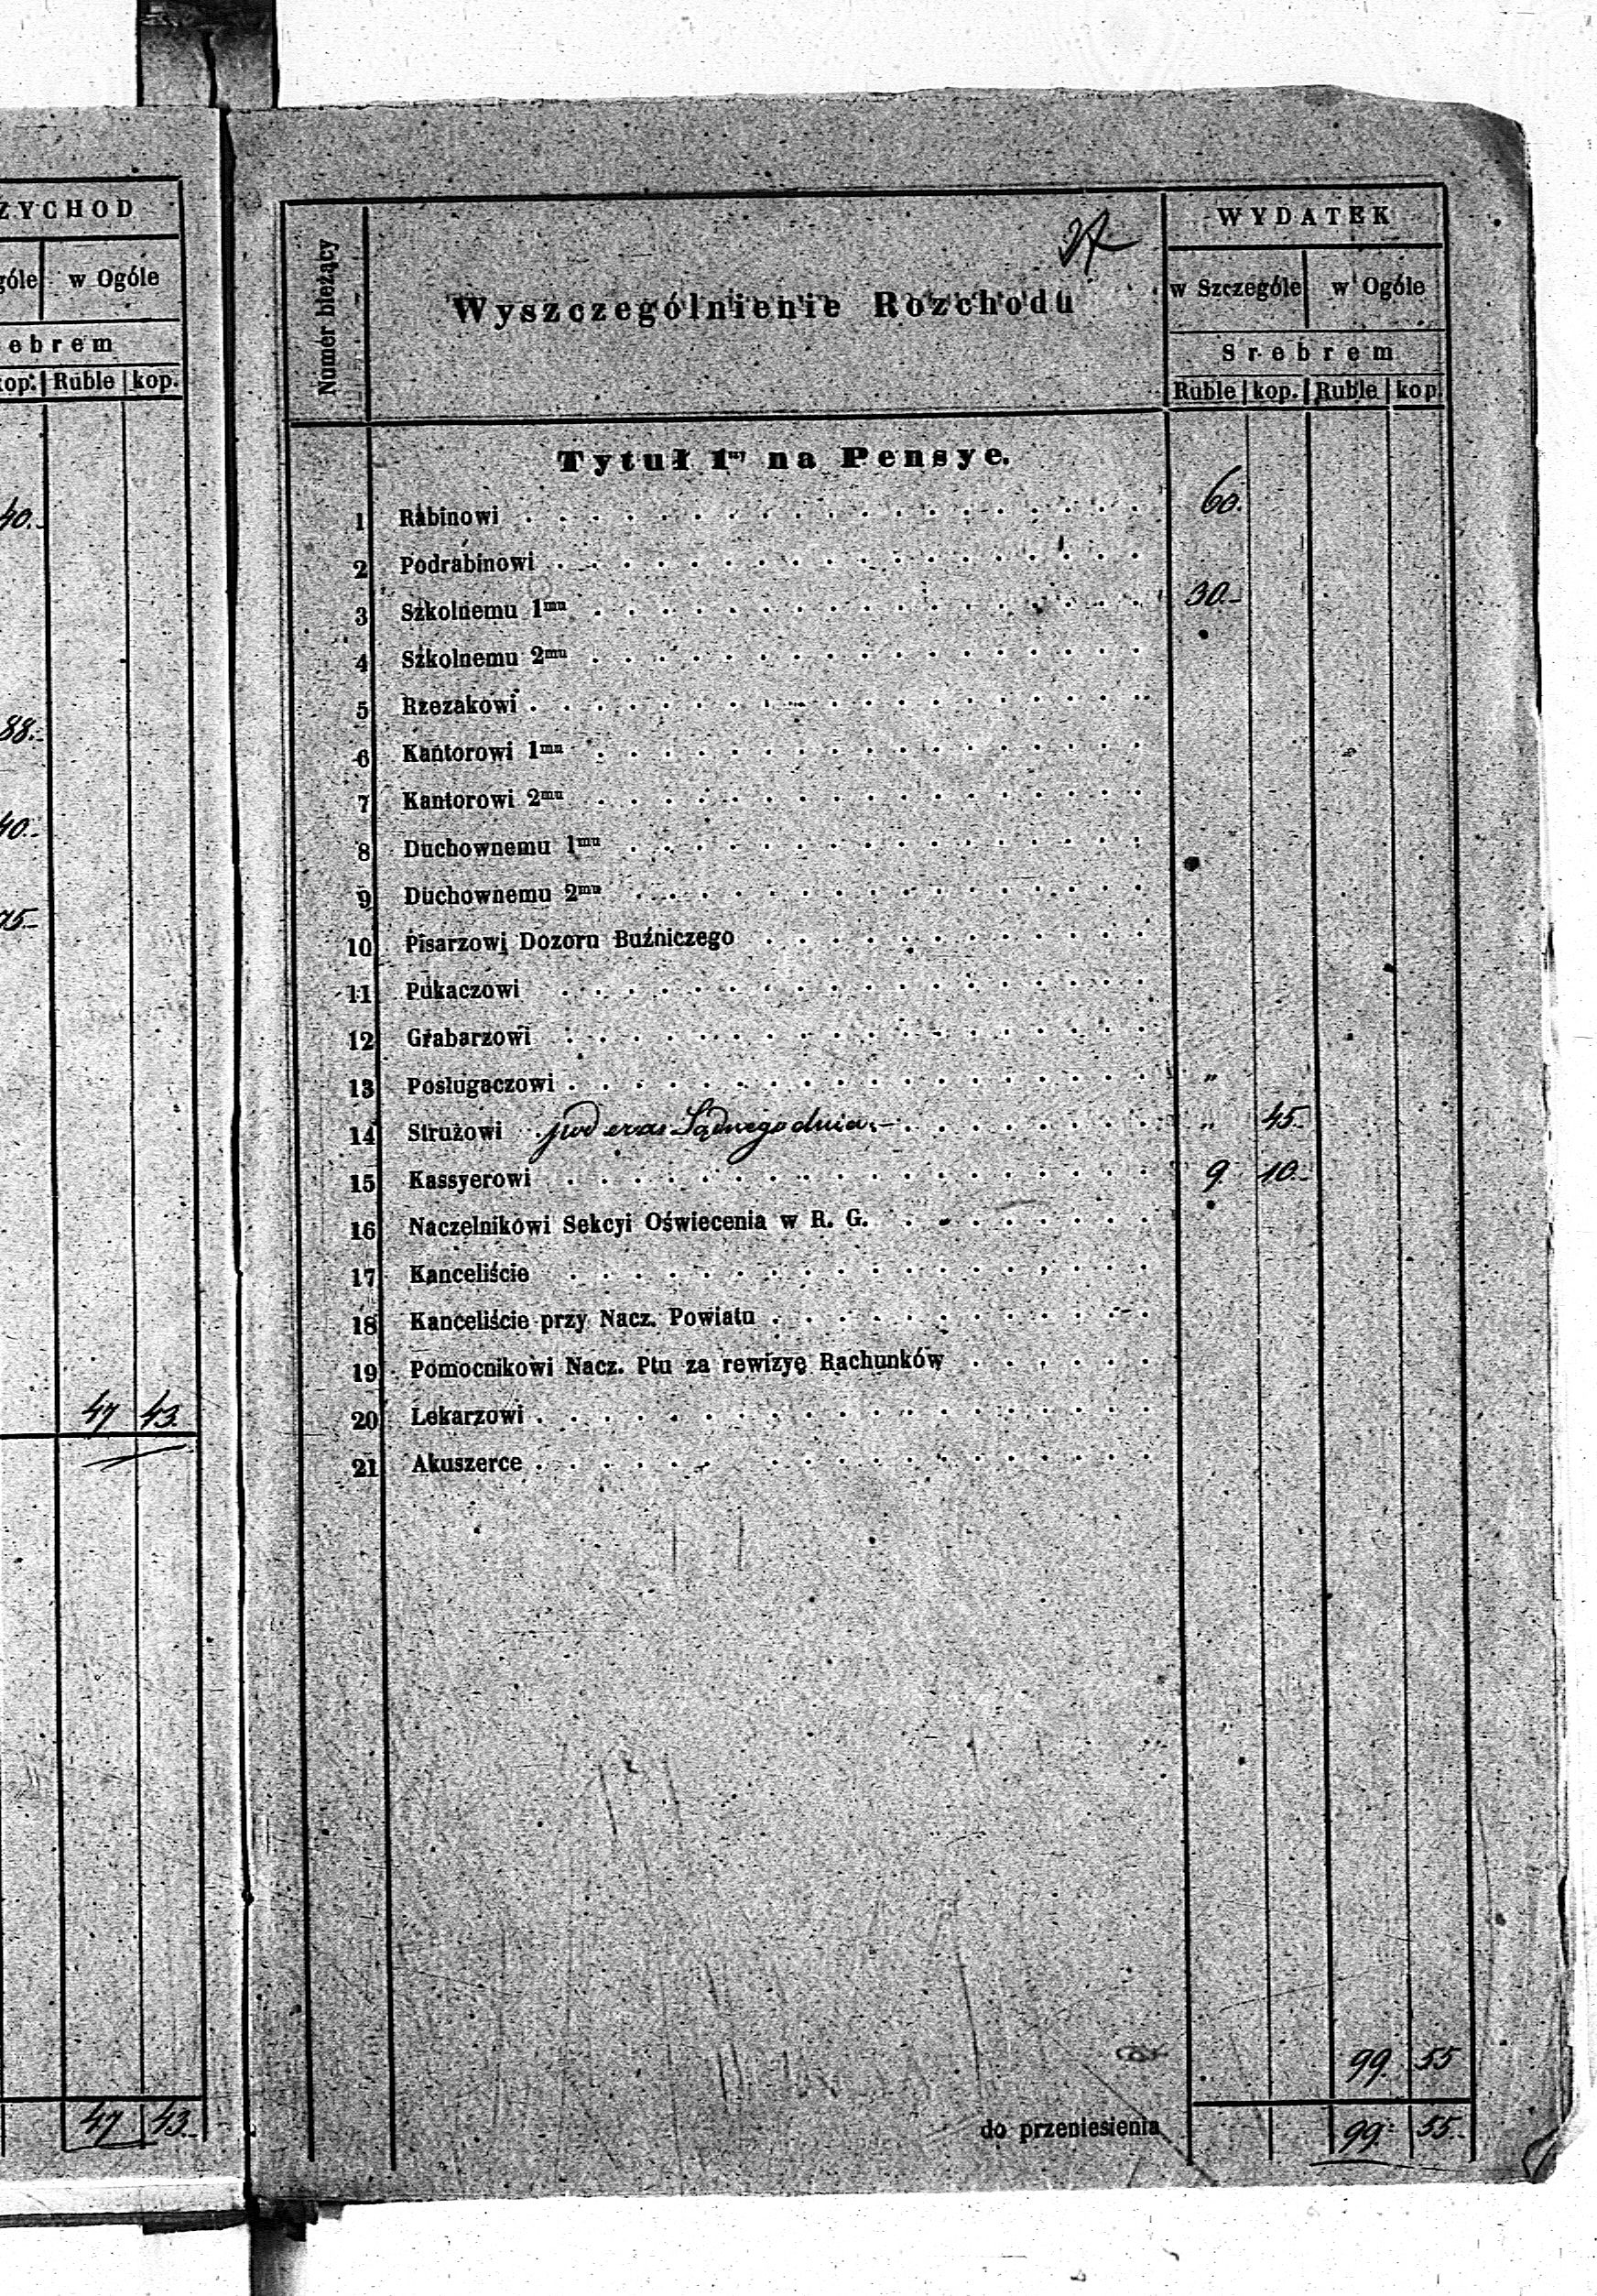 ZYCHOD
góle w Ogóle
ebrem
kop. Ruble kop.
40.
88.
40.
75
47 43.
47 43.
Numer bieżący
Wyszczególnienie Rozchodu
WYDATEK
w Szczególe w Ogóle
Srebrem
Ruble kop. Ruble kop.
Tytuł 1ny na Pensye.
1 Rabinowi 60.
2 Podrabinowi
3 Szkolnemu 1mu 30.
4 Szkolnemu 2mu
5 Rzezakowi
6 Kantorowi 1mu
7 Kantorowi 2mu
8 Duchownemu 1mu
9 Duchownemu 2mu
10 Pisarzowi Dozoru Buźniczego
11 Pukaczowi
12 Grabarzowi
13 Posługaczowi "
14 Stróżowi Sądnego dnia " 45
15 Kassyerowi 9 10.
16 Naczelnikowi Sekcyi Oświecenia w R. G.
17 Kanceliście
18 Kanceliście przy Nacz. Powiatu
19 Pomocnikowi Nacz. Ptu za rewizyę Rachunków
20 Lekarzowi
21 Akuszerce
99. 55
do przeniesienia 99. 55